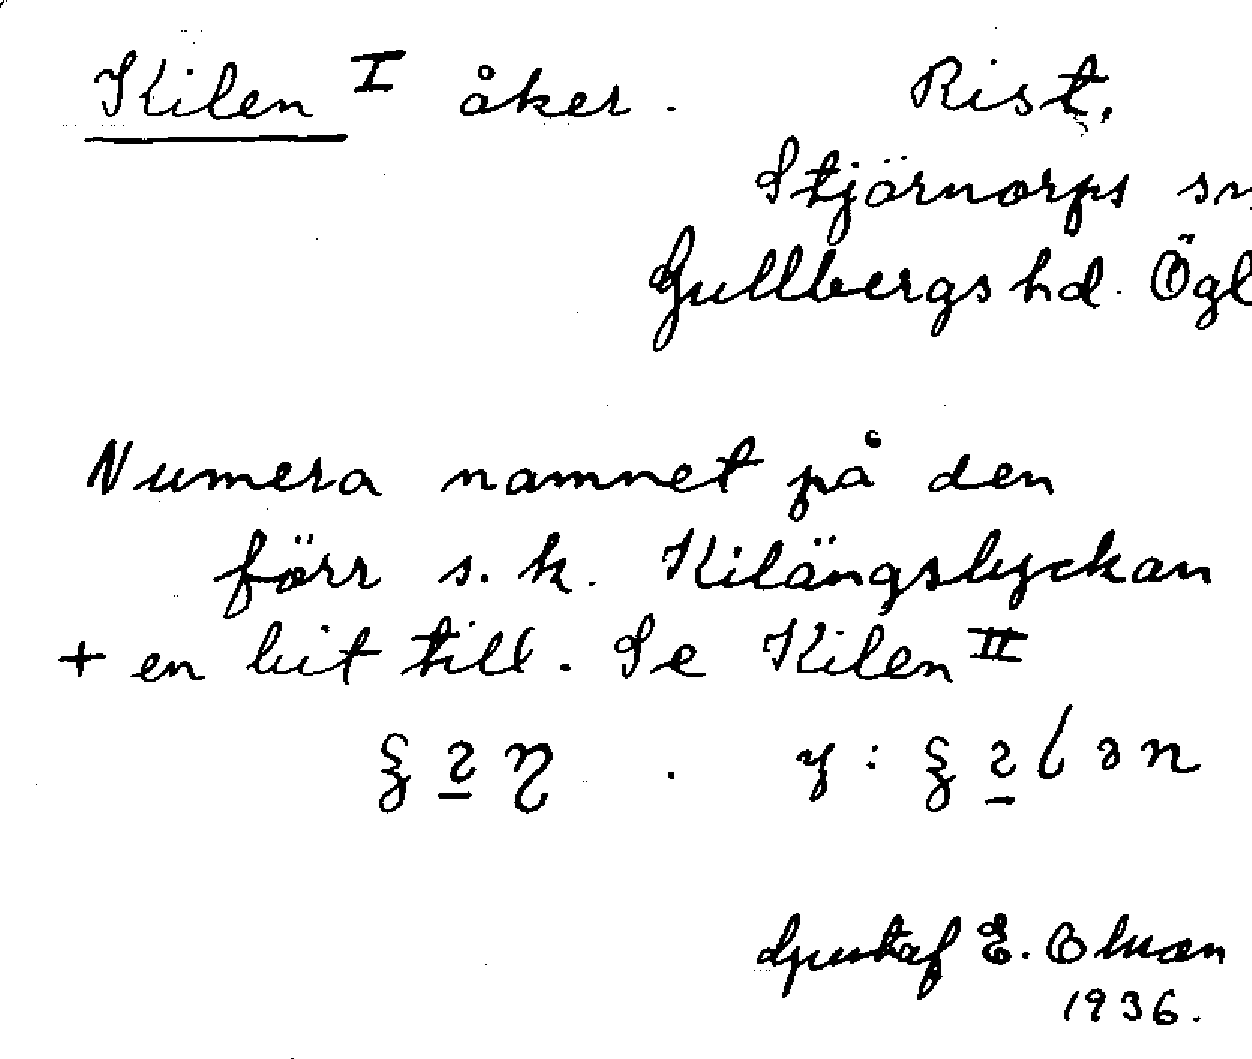 Kilen I åker. Rist,
Stjärnorps sn,
Gullbergs hd. Ögl
Numera namnet på den
förr s. k. Kilängslyckan
+ en bit till. Se Kilen II
y:
Gustaf E. Olsson
1936.